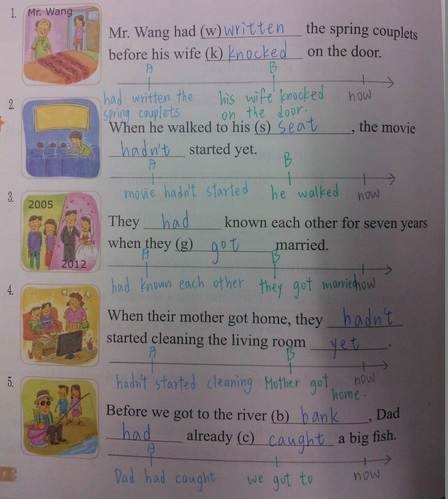 1.
Mr. Wang
Mr. Wang had (w) written the spring couplets
before his wife (k) knocked on the door.
A B
had written the his wife knocked now
spring couplets on the door.
2.
When he walked to his (s) seat, the movie
hadn't started yet.
A B
movie hadn't started he walked now
3.
2005
2012
They had known each other for seven years
when they (g) got married.
A B
had known each other they got married now
4.
When their mother got home, they hadn't
started cleaning the living room yet.
A B
hadn't started cleaning Mother got now
home.
5.
Before we got to the river (b) bank, Dad
had already (c) caught a big fish.
A B
Dad had caught we got to now